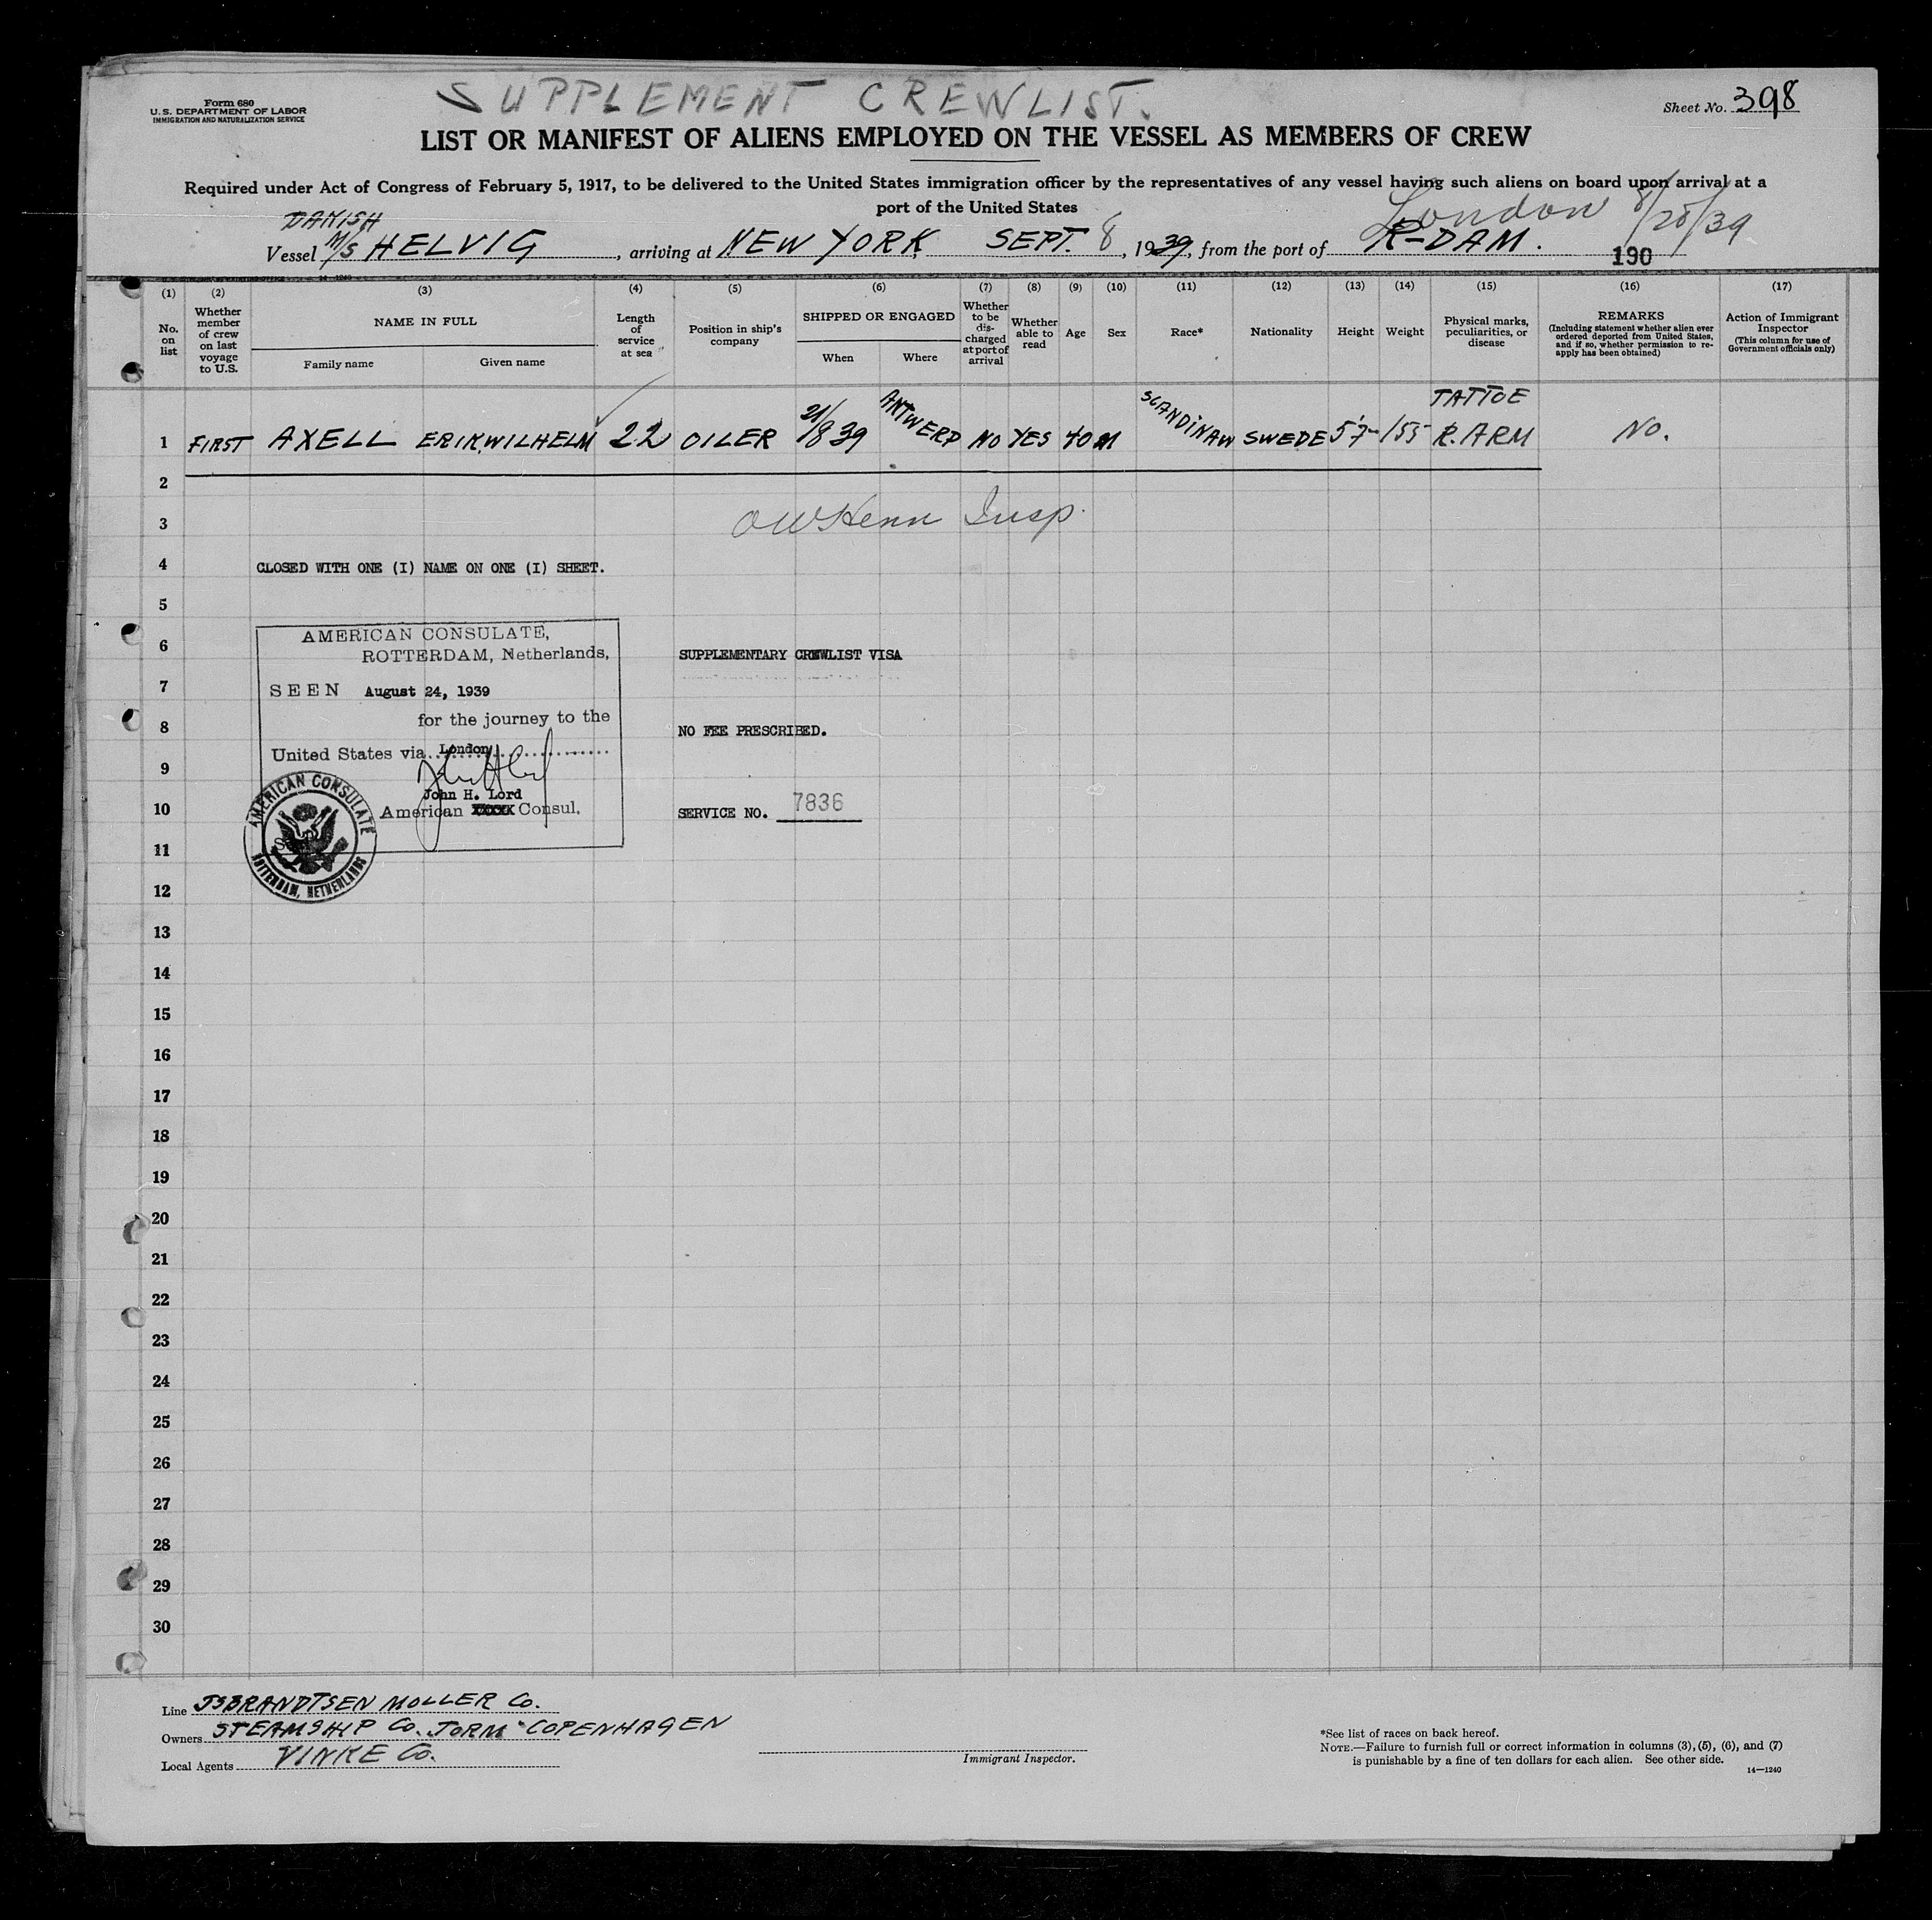 SUPPLEMENT CREWLIST.
Form 680
U. S. DEPARTMENT OF LABOR
IMMIGRATION AND NATURALIZATION SERVICE
Sheet No. 398
LIST OR MANIFEST OF ALIENS EMPLOYED ON THE VESSEL AS MEMBERS OF CREW
Required under Act of Congress of February 5, 1917, to be delivered to the United States immigration officer by the representatives of any vessel having such aliens on board upon arrival at a
port of the United States
DANISH
London 8/28/39
Vessel M/S HELVIG, arriving at NEW YORK, SEPT. 8, 1939, from the port of R-DAM.
190
14—1240
(1) (2) (3) (4) (5) (6) (7) (8) (9) (10) (11) (12) (13) (14) (15) (16) (17)
No. on list
Whether member of crew on last voyage to U.S.
NAME IN FULL
Family name Given name
Length of service at sea
Position in ship's company
SHIPPED OR ENGAGED
When Where
Whether to be discharged at port of arrival
Whether able to read
Age
Sex
Race*
Nationality
Height
Weight
Physical marks, peculiarities, or disease
REMARKS
(Including statement whether alien ever ordered deported from United States, and if so, whether permission to reapply has been obtained)
Action of Immigrant Inspector
(This column for use of Government officials only)
1 FIRST AXELL ERIK,WILHELM 22 OILER 21/8 39 ANTWERP NO YES 40 M SCANDINAW SWEDE 5'7" 155 TATTOE R. ARM NO.
2
3 OWHenn Insp.
4 CLOSED WITH ONE (I) NAME ON ONE (I) SHEET.
5
6 AMERICAN CONSULATE,
ROTTERDAM, Netherlands,
SUPPLEMENTARY CREWLIST VISA
7 SEEN August 24, 1939
for the journey to the
8 NO FEE PRESCRIBED.
United States via London
9
John H. Lord
10 American XXXX Consul.
SERVICE NO. 7836
AMERICAN CONSULATE
ROTTERDAM, NETHERLANDS
11
12
13
14
15
16
17
18
19
20
21
22
23
24
25
26
27
28
29
30
Line ISBRANDTSEN MOLLER Co.
Owners STEAMSHIP Co. TORM COPENHAGEN
Local Agents VINKE Co.
Immigrant Inspector.
*See list of races on back hereof.
NOTE.—Failure to furnish full or correct information in columns (3), (5), (6), and (7)
is punishable by a fine of ten dollars for each alien. See other side.
14—1240